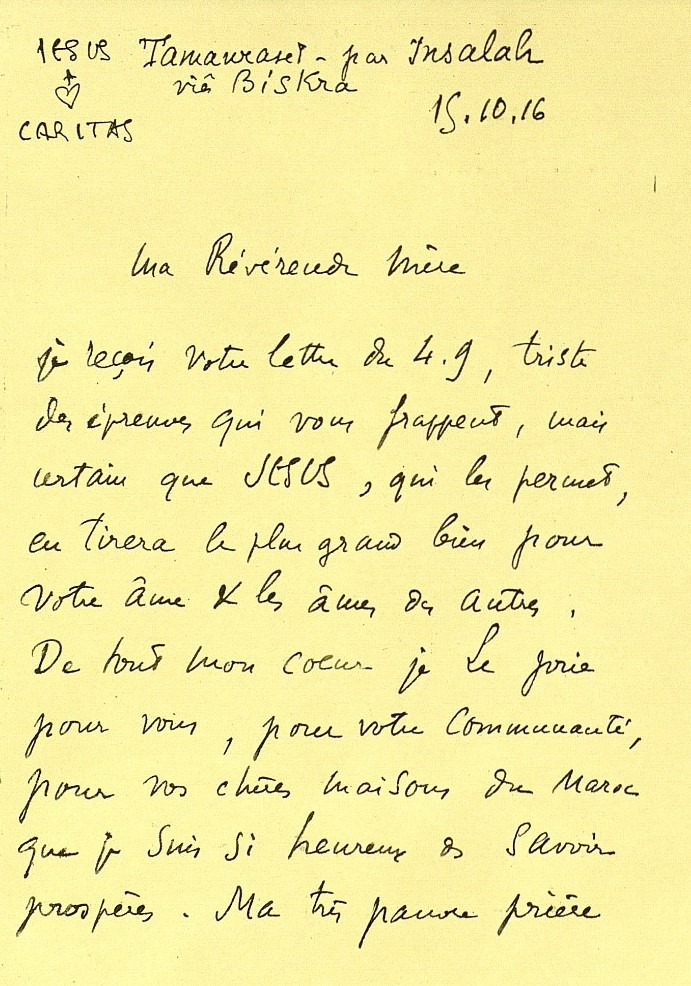 JESUS Tamanraset - par Insalah
CARITAS viâ Biskra
15.10.16
Ma Révérende Mère
je reçois votre lettre du 4.9, triste
des épreuves qui vous frappent, mais
certain que JESUS, qui les permet,
en tirera le plus grand bien pour
votre âme & les âmes des autres.
De tout mon coeur je Le prie
pour vous, pour votre Communauté,
pour vos chères maisons du Maroc
que je suis si heureux de savoir
prospères. Ma très pauvre prière